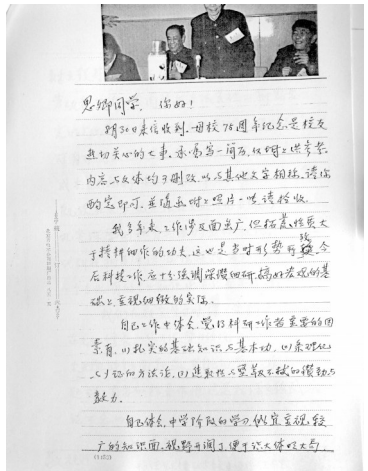 思卿同学, 你好!
8月30日来信收到, 母校75週年纪念是校友
迫切关心的大事, 承嘱写一简历, 仅附上供参考
内容与文体均可删改, 以与其他文字相称, 请你
酌定即可, 并随函附上照片一张请检收。
我多年来工作涉及面虽广, 但拓荒性质大
于精耕细作的功夫, 这也是当时形势所致, 今
后科技工作应十分强调深入细研, 搞好宏观的基
础上重视细微的实际。
自己工作中体会, 觉得科研工作者重要的因
素有, (1)扎实的基础知识与基本功, (2)条理化
与 的方法论, (3)进取性与坚毅不拔的 与
毅力。
自己体会中学阶段的学习似宜重视较
广的知识面, 视野开阔了便于识大体吃大局,